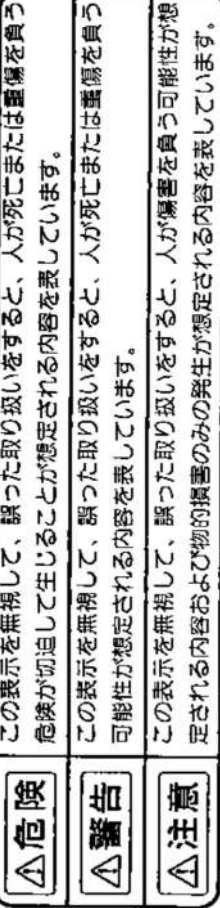 ⚠危険
この表示を無視して、誤った取り扱いをすると、人が死亡または重傷を負う
危険が切迫して生じることが想定される内容を表しています。
⚠警告
この表示を無視して、誤った取り扱いをすると、人が死亡または重傷を負う
可能性が想定される内容を表しています。
⚠注意
この表示を無視して、誤った取り扱いをすると、人が傷害を負う可能性が想
定される内容および物的損害のみの発生が想定される内容を表しています。